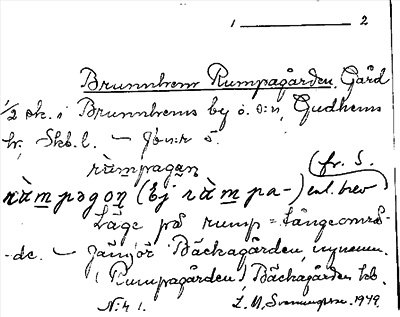 1 ———— 2
Brunnhem Rumpagården. Gård
1/2 sk. i Brunnhems by o. s:n, Gudhems
hr, Skb. l. — Jb:n:r 5.
ràmpagɑn (fr. S.
ràmpagon (ej ràmpa-) enl. brev
Läge på rump = tångeområ-
-de. — Jämför Bäckagården, nynamn.
(Rumpagården) Bäckagården
N:r 1. L. M. Svenungsson. 1949.